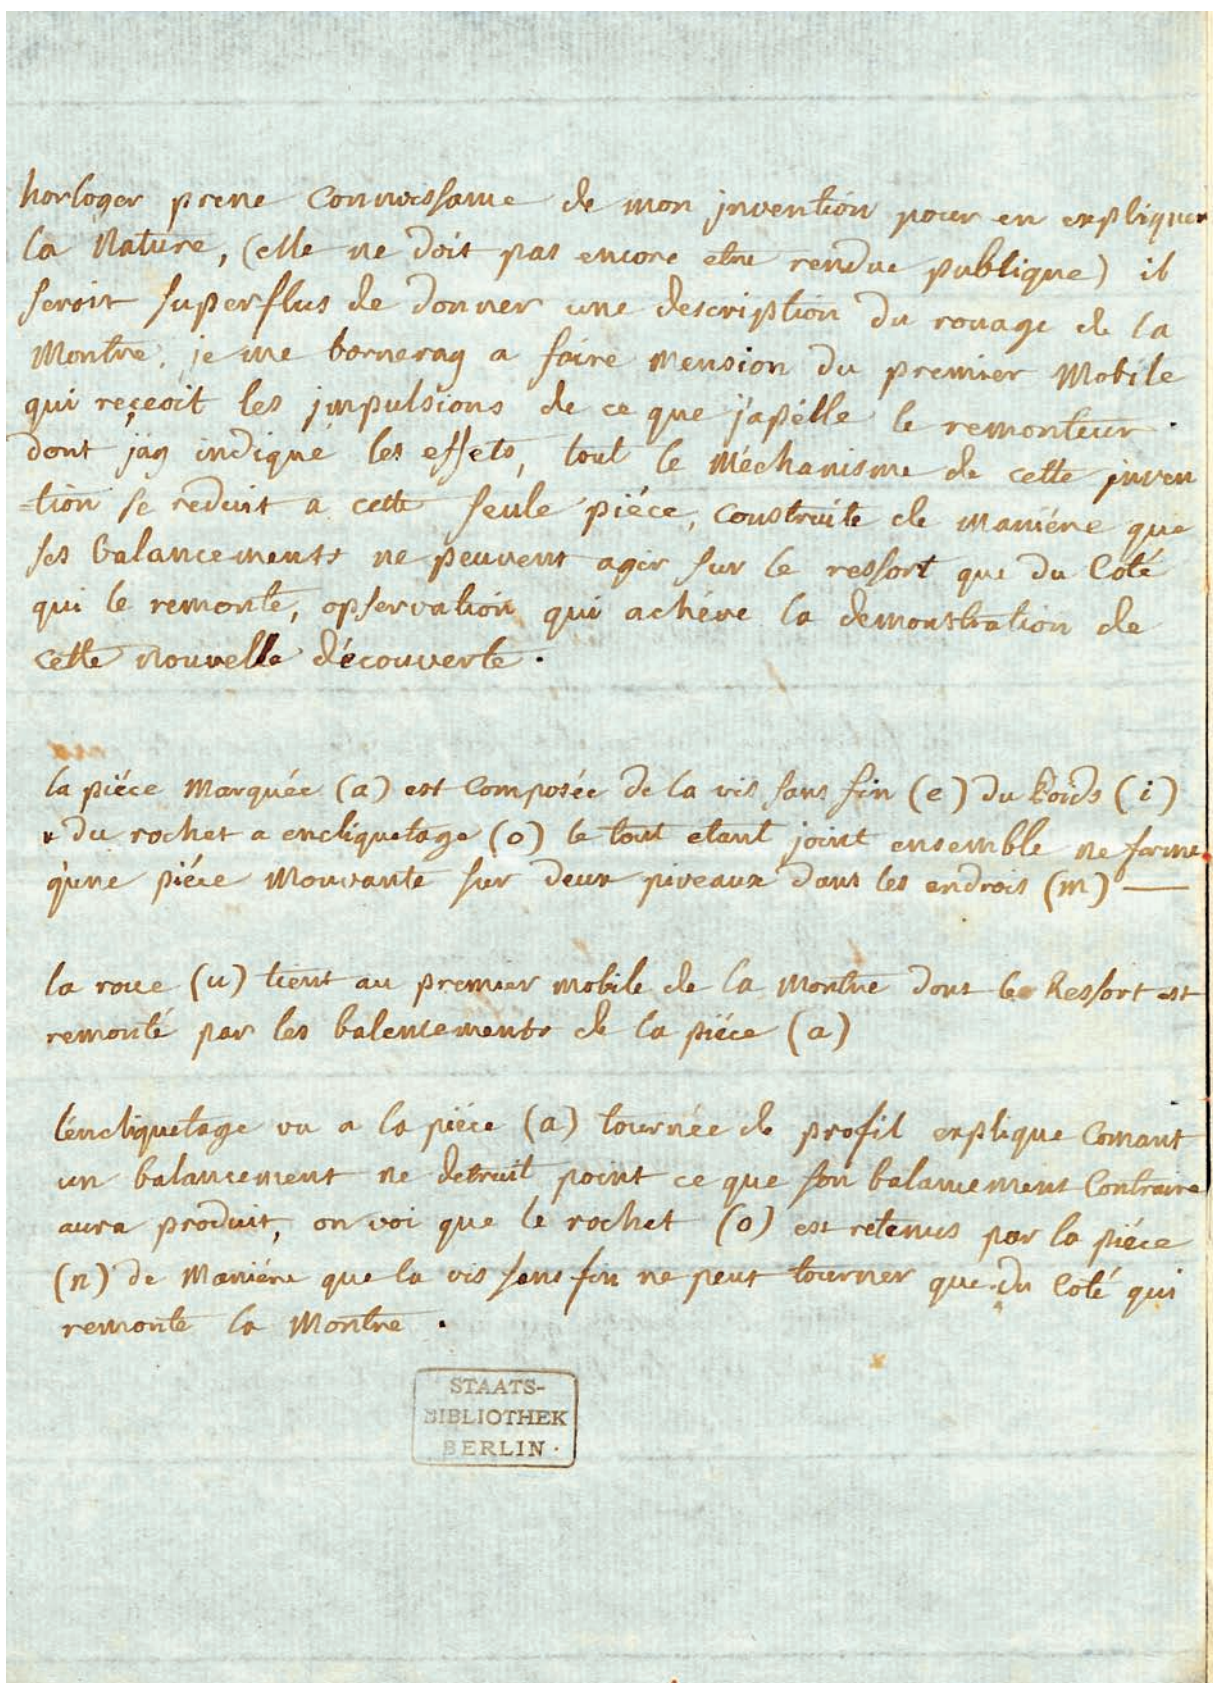 horloger prene Connoissance de mon jnvention pour en expliquer
la Nature, (elle ne doit pas encore etre rendue publique) il
seroit superflus de donner une description du rouage de la
Montre, je me borneray a faire Mension du premier Mobile
qui reçeoit les jmpulsions de ce que j'apélle le remonteur.
dont j'ay indiqué les effets, tout le Méchanisme de cette jnven
=tion se reduit a cette seule piéce, Construite de maniére que
ses balancements ne peuvent agir sur le ressort que du Coté
qui le remonte, opservation qui achéve la demonstration de
cette nouvelle découverte.
la piéce Marquée (a) est Composée de la vis sans fin (e) du Poids (i)
du rochet a encliquetage (o) le tout etant joint ensemble ne forme
q'une piéce Mouvante sur deux piveaux dans les endrois (m) —
la roue (u) tient au premier mobile de la Montre dont le Ressort est
remonté par les balencements de la piéce (a)
l'encliquetage vu a la piéce (a) tournée de profil explique Comant
un balancement ne detruit point ce que son balancement Contraire
aura produit, on voi que le rochet (o) est retenus par la piéce
(n) de Maniére que la vis sans fin ne peut tourner que du Coté qui
remonte la Montre.
STAATS-
BIBLIOTHEK
BERLIN.